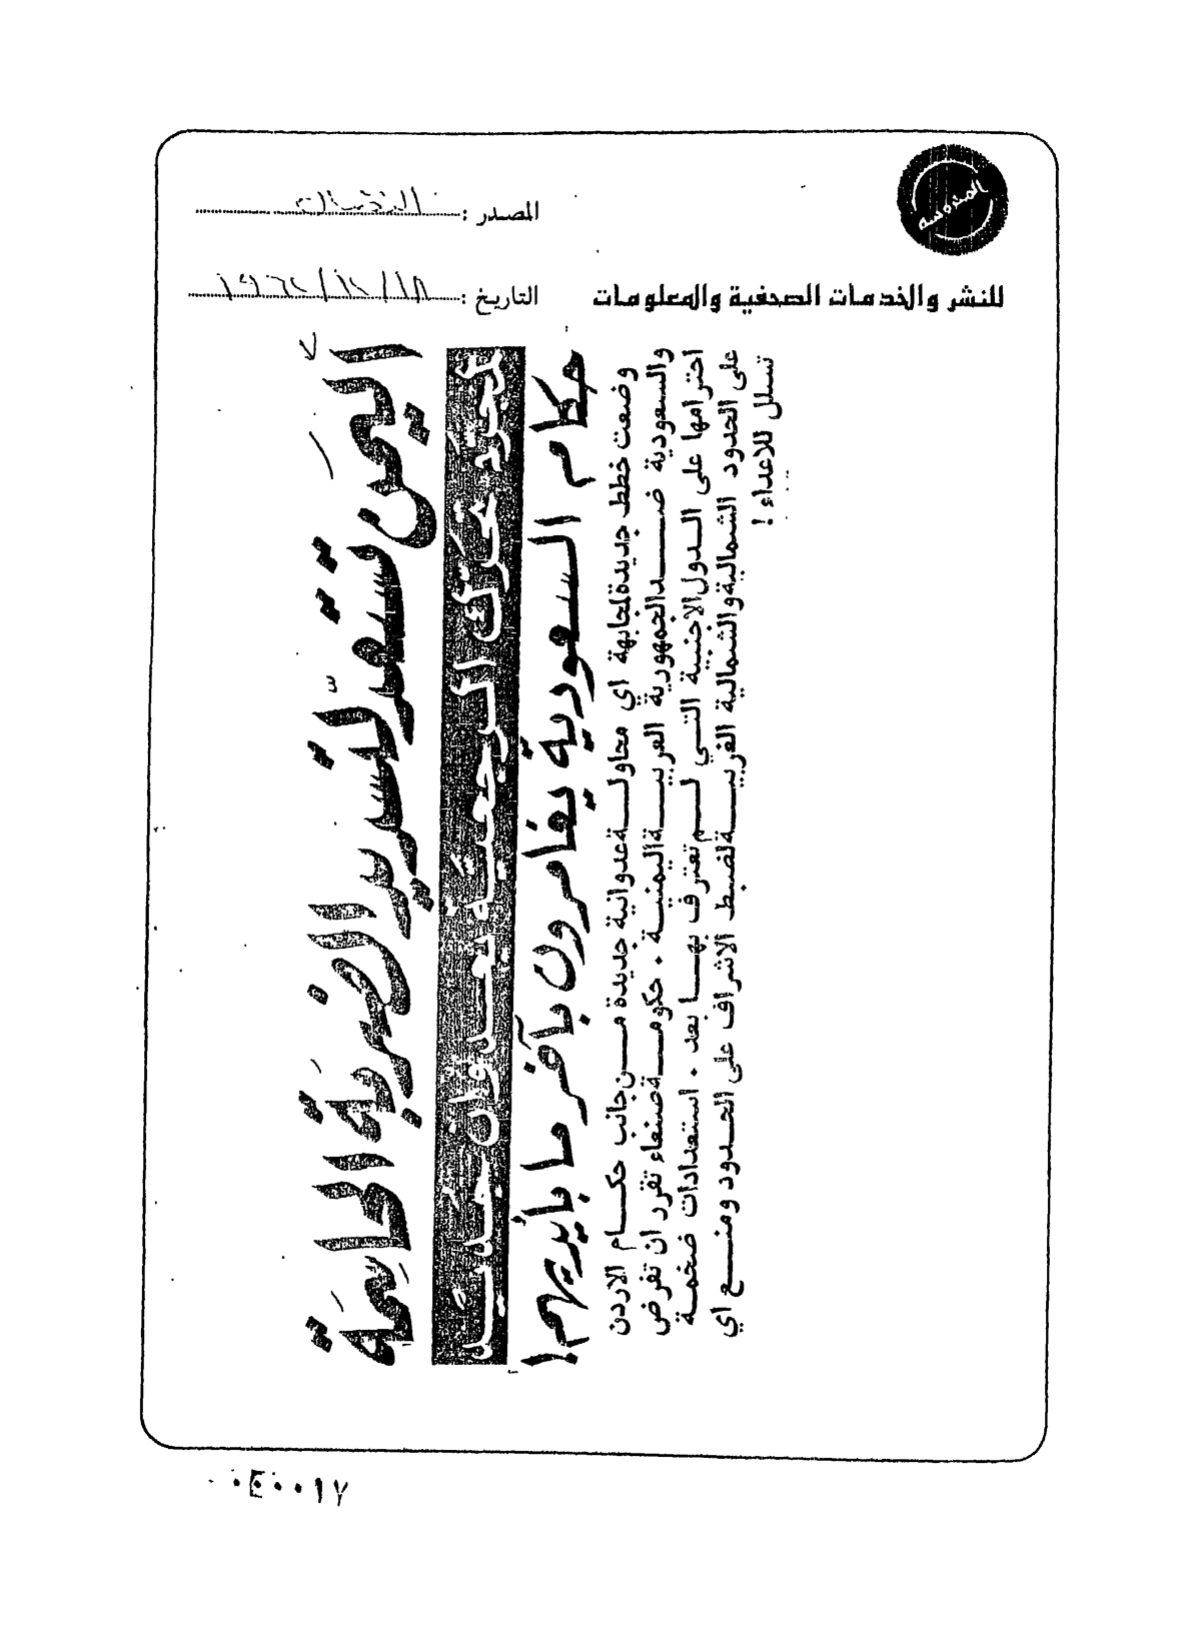 المحروسة
المصدر :
للنشر والخدمات الصحفية والمعلومات
التاريخ : ١٨/١٢/١٩٦٢
اليمن تستعد لتسديد الضربة الحاسمة
لمجرد تحرك الرجعية بعدوان جديد
حكام السعودية يغامرون بآخر ما بأيديهم !
وضعت خطط جديدة لمجابهة اي محاولة عدوانية جديدة من جانب حكام الاردن
والسعودية ضد الجمهورية العربية اليمنية . حكومة صنعاء تقرر ان تفرض
احترامها على الدول الاجنبية التي لم تعترف بها بعد . استعدادات ضخمة
على الحدود الشمالية والشمالية الغربية لضبط الاشراف على الحدود ومنع اي
تسلل للاعداء !